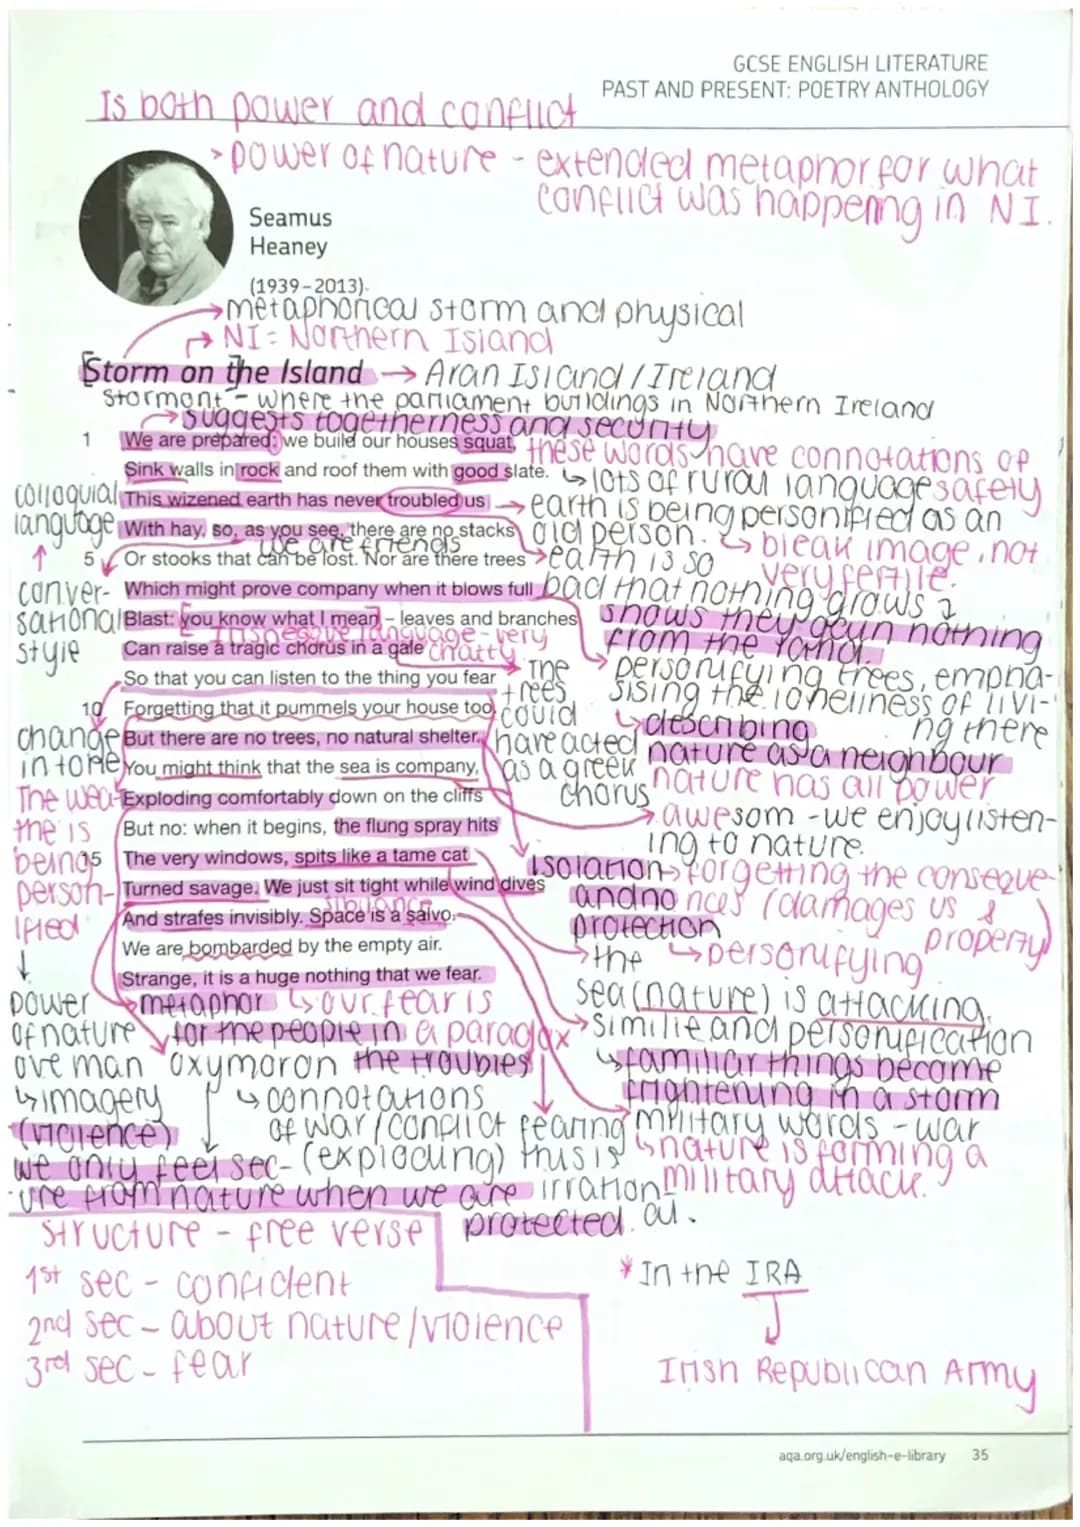 GCSE ENGLISH LITERATURE
PAST AND PRESENT: POETRY ANTHOLOGY
Is both power and conflict
> power of nature - extended metaphor for what
conflict was happening in NI.
Seamus
Heaney
(1939–2013)
metaphorical storm and physical
NI = Northern Island
Storm on the Island → Aran Island / Ireland
Stormont - where the parliament buildings in Northern Ireland
suggests togetherness and security
1 We are prepared: we build our houses squat,
Sink walls in rock and roof them with good slate.
This wizened earth has never troubled us
With hay, so, as you see, there are no stacks
we are friends
5 Or stooks that can be lost. Nor are there trees
Which might prove company when it blows full
Blast: you know what I mean – leaves and branches
Can raise a tragic chorus in a gale
So that you can listen to the thing you fear
10 Forgetting that it pummels your house too.
But there are no trees, no natural shelter.
You might think that the sea is company,
Exploding comfortably down on the cliffs
But no: when it begins, the flung spray hits
15 The very windows, spits like a tame cat
Turned savage. We just sit tight while wind dives
sibilance
And strafes invisibly. Space is a salvo.
We are bombarded by the empty air.
Strange, it is a huge nothing that we fear.
these words have connotations of
safety
lots of rural language
colloquial
language
↑
conver-
sational
style
earth is being personified as an
old person.
bleak image, not
very fertile.
earth is so
bad that nothing grows
shows they gain nothing
from the land.
language - very
chatty
personifying trees, empha-
sising the loneliness of livi-
ng there
describing
nature as a neighbour
The
trees
could
have acted
as a greek
chorus
nature has all power
awesom - we enjoy listen-
ing to nature.
change
in tone
The wea-
the is
being
person-
ified
↓
power
of nature
ove man
imagery
(violence)
Isolation
and no
protection
forgetting the conseque-
nces (damages us &
property)
the
personifying
sea (nature) is attacking.
similie and personification
familiar things become
frightening in a storm
military words - war
nature is forming a
military attack.
metaphor
for the people in
the troubles
our fear is
a paradox
fearing
this is
irration-
al.
oxymoron
connotations
of war / conflict
(exploding)
we only feel sec-
ure from nature when we are
protected.
structure - free verse
1st sec - confident
2nd sec - about nature/violence
3rd sec - fear
* In the IRA
Irish Republican Army
aqa.org.uk/english-e-library 35